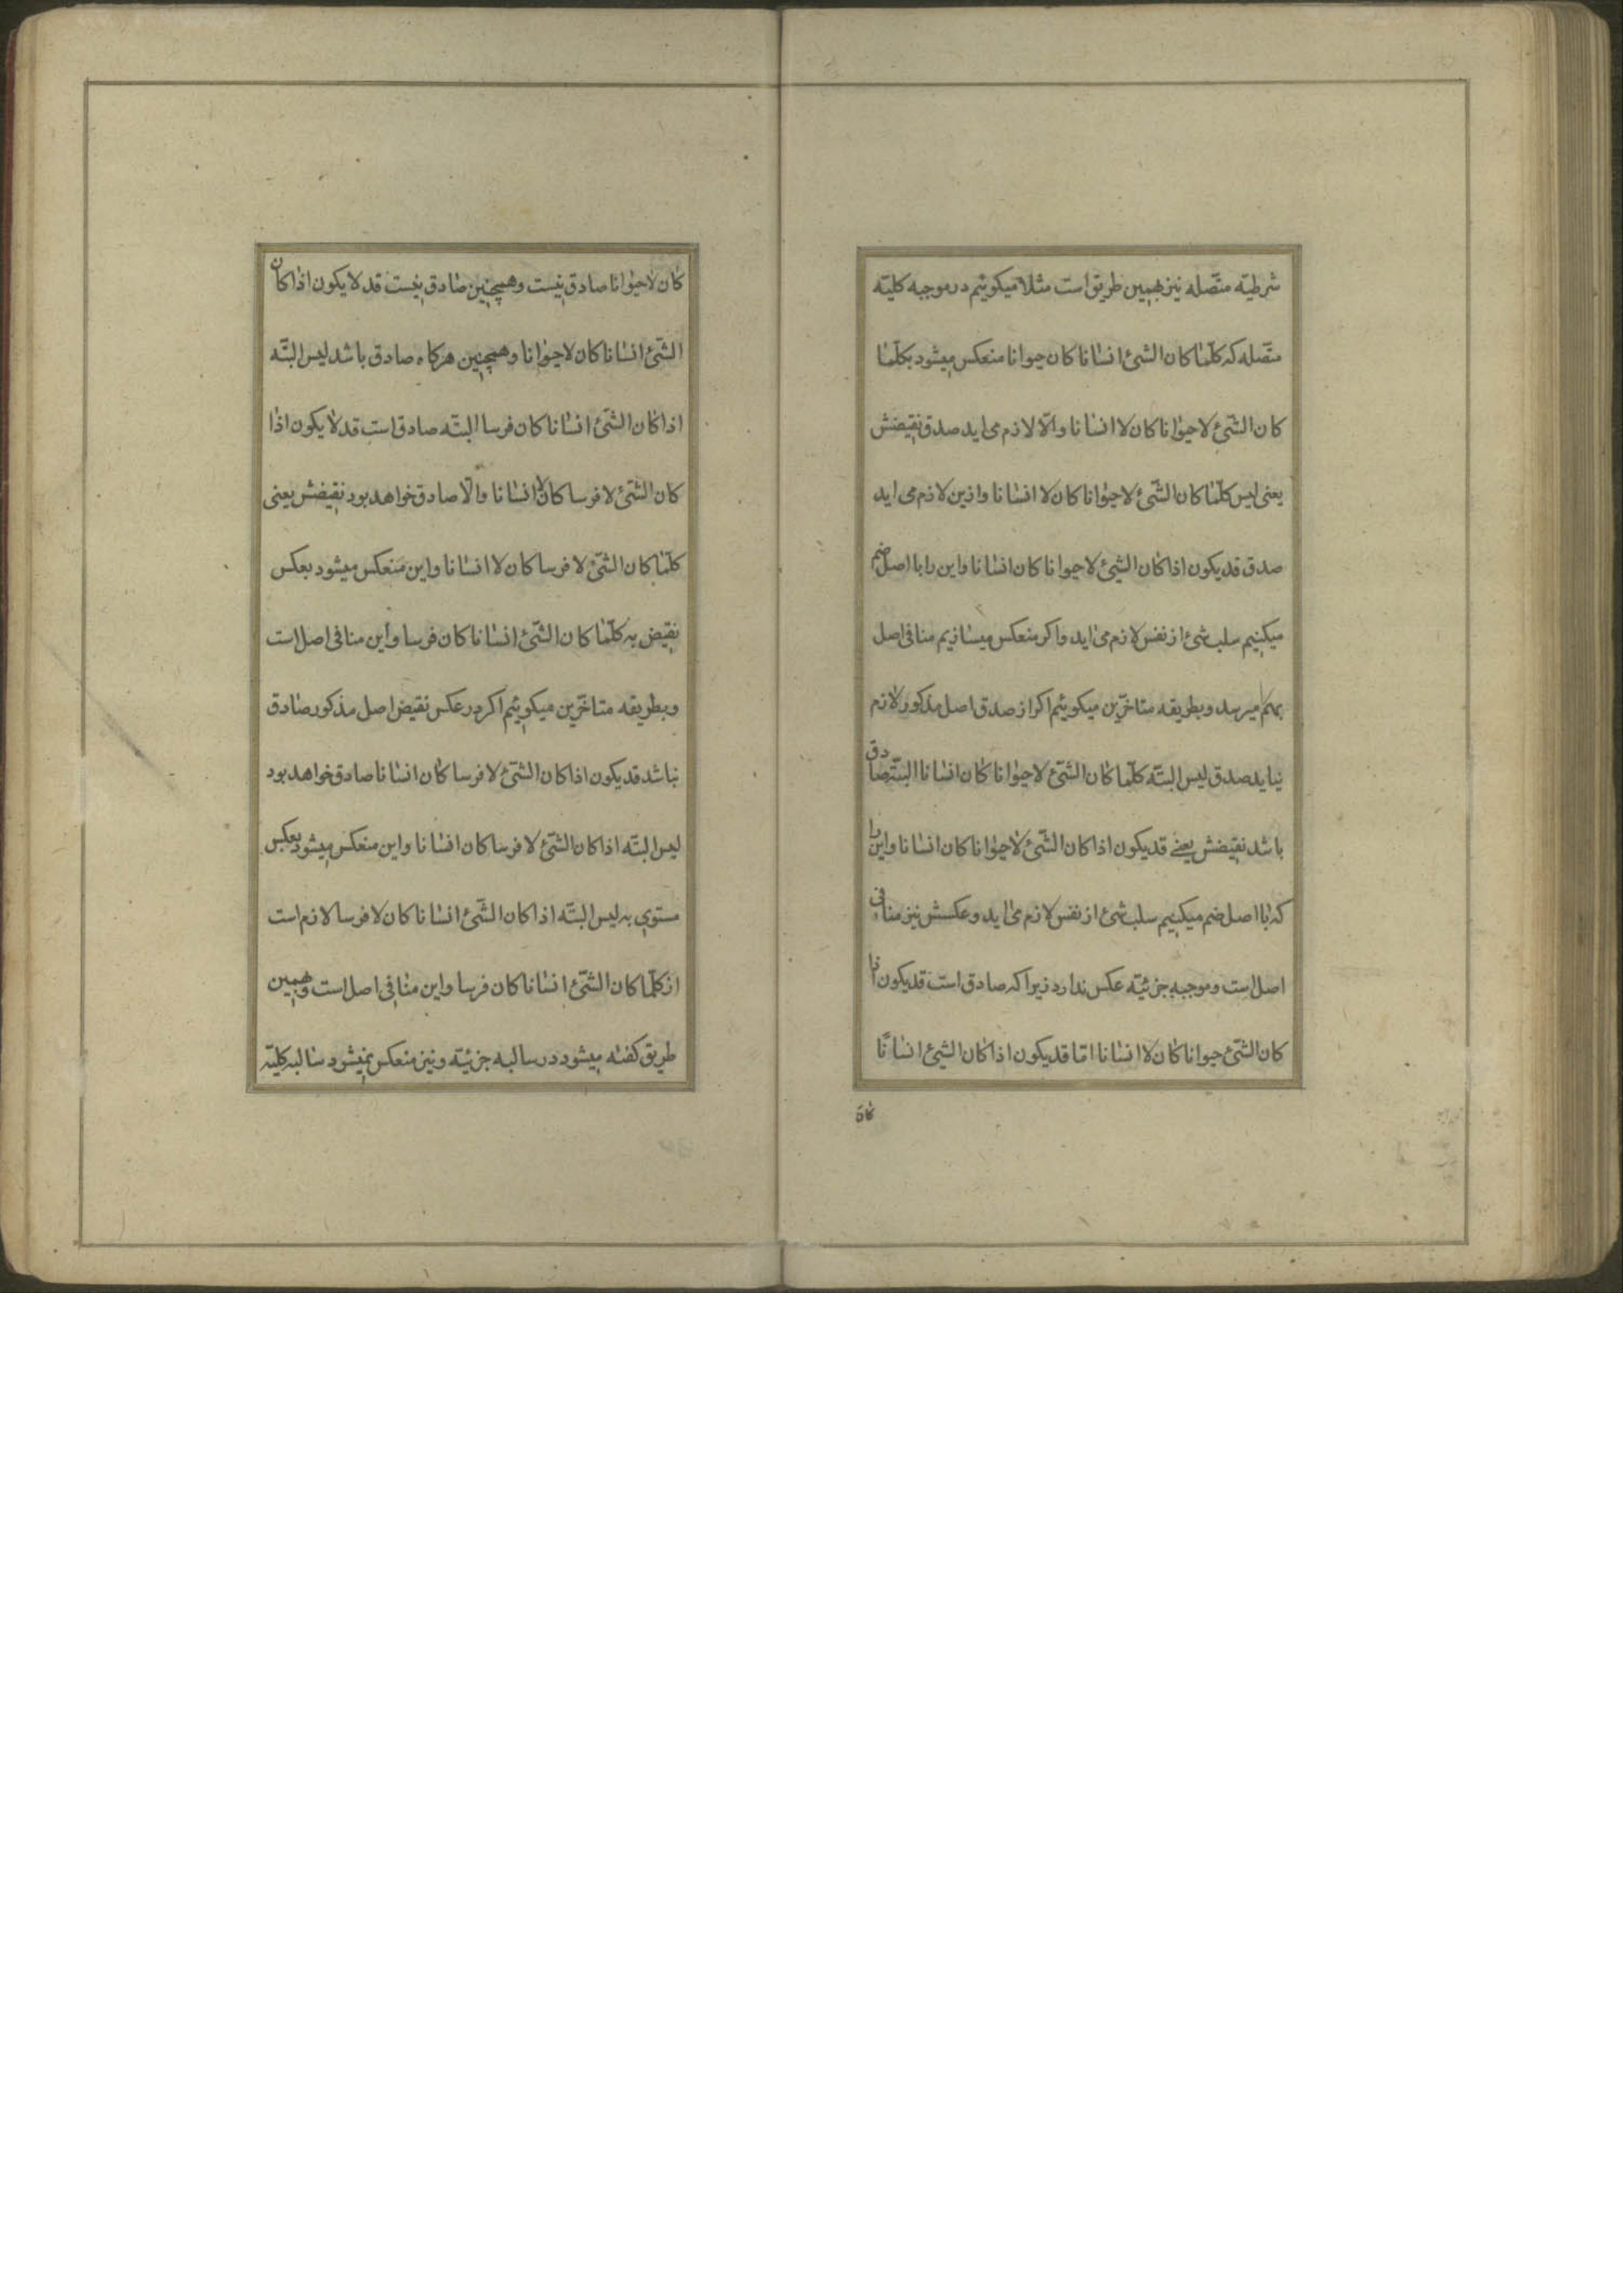 شرطیّه متّصله نیز بهمین طریق است مثلا میکوئیم در موجبه کلیّه
متّصله که کلّما کان الشئ انسانا کان حیوانا منعکس میشود بکلّما
کان الشّئ لا حیوانا کان لا انسانا و الّا لازم می اید صدق نقیضش
یعنی لیس کلّما کان الشّئ لا حیوانا کان لا انسانا و ازین لازم می اید
صدق قد یکون اذا کان الشئ لا حیوانا کان انسانا و این را با اصل ضم
میکنیم سلب شئ از نفس لازم می اید و اکر منعکس میسازیم منافی اصل
بهم میرسد و بطریقه متاخّرین میکوئیم اکر از صدق اصل مذکور لازم
نیاید صدق لیس البتّه کلّما کان الشّئ لا حیوانا کان انسانا البتّه صادق
باشد نقیضش یعنی قد یکون اذا کان الشّئ لا حیوانا کان انسانا و این را
که با اصل ضم میکنیم سلب شئ از نفس لازم می اید و عکسش نیز منافی
اصل است و موجبه جزئیّه عکس ندارد زیرا که صادق است قد یکون اذا
کان الشّئ حیوانا کان لا انسانا امّا قد یکون اذا کان الشئ انسانا
کان
کان لا حیوانا صادق نیست و همچنین صادق نیست قد لا یکون اذا کان
الشّئ انسانا کان لا حیوانا و همچنین هرکاه صادق باشد لیس البتّه
اذا کان الشّئ انسانا کان فرسا البتّه صادق است قد لا یکون اذا
کان الشّئ لا فرسا کان لا انسانا و الّا صادق خواهد بود نقیضش یعنی
کلّما کان الشّئ لا فرسا کان لا انسانا و این منعکس میشود بعکس
نقیض به کلّما کان الشّئ انسانا کان فرسا و این منافی اصل است
و بطریقه متاخّرین میکوئیم اکر در عکس نقیض اصل مذکور صادق
نباشد قد یکون اذا کان الشّئ لا فرسا کان انسانا صادق خواهد بود
لیس البتّه اذا کان الشّئ لا فرسا کان انسانا و این منعکس میشود بعکس
مستوی به لیس البتّه اذا کان الشّئ انسانا کان لا فرسا لازم است
از کلّما کان الشّئ انسانا کان فرسا و این منافی اصل است و همین
طریق کفته میشود در سالبه جزئیّه و نیز منعکس نمیشود سالبه کلیّه